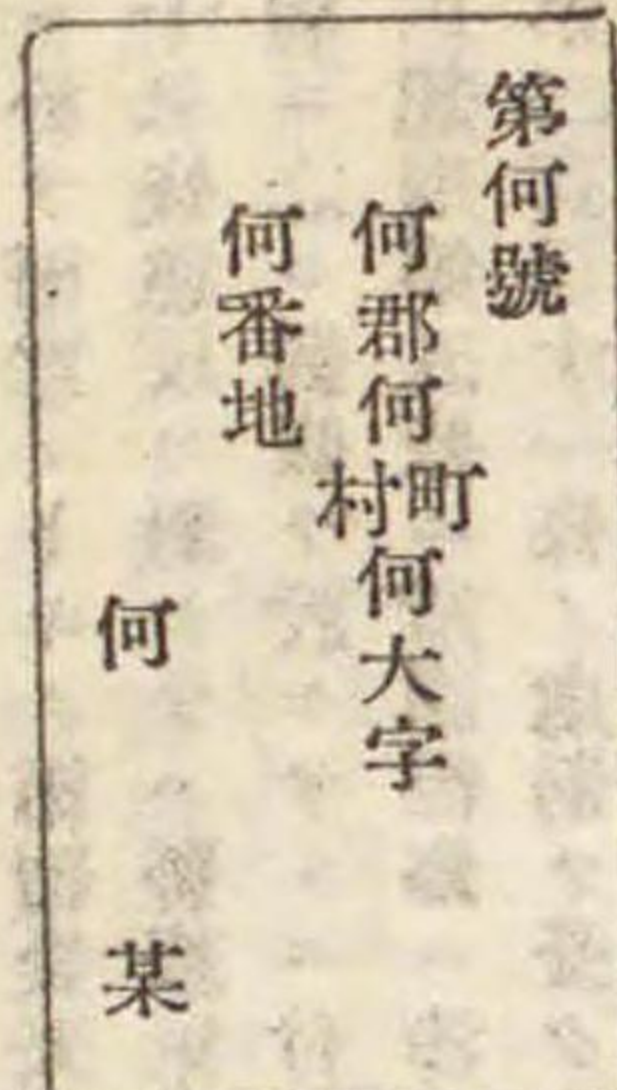 第何號
何郡何町村何大字
何番地
何某